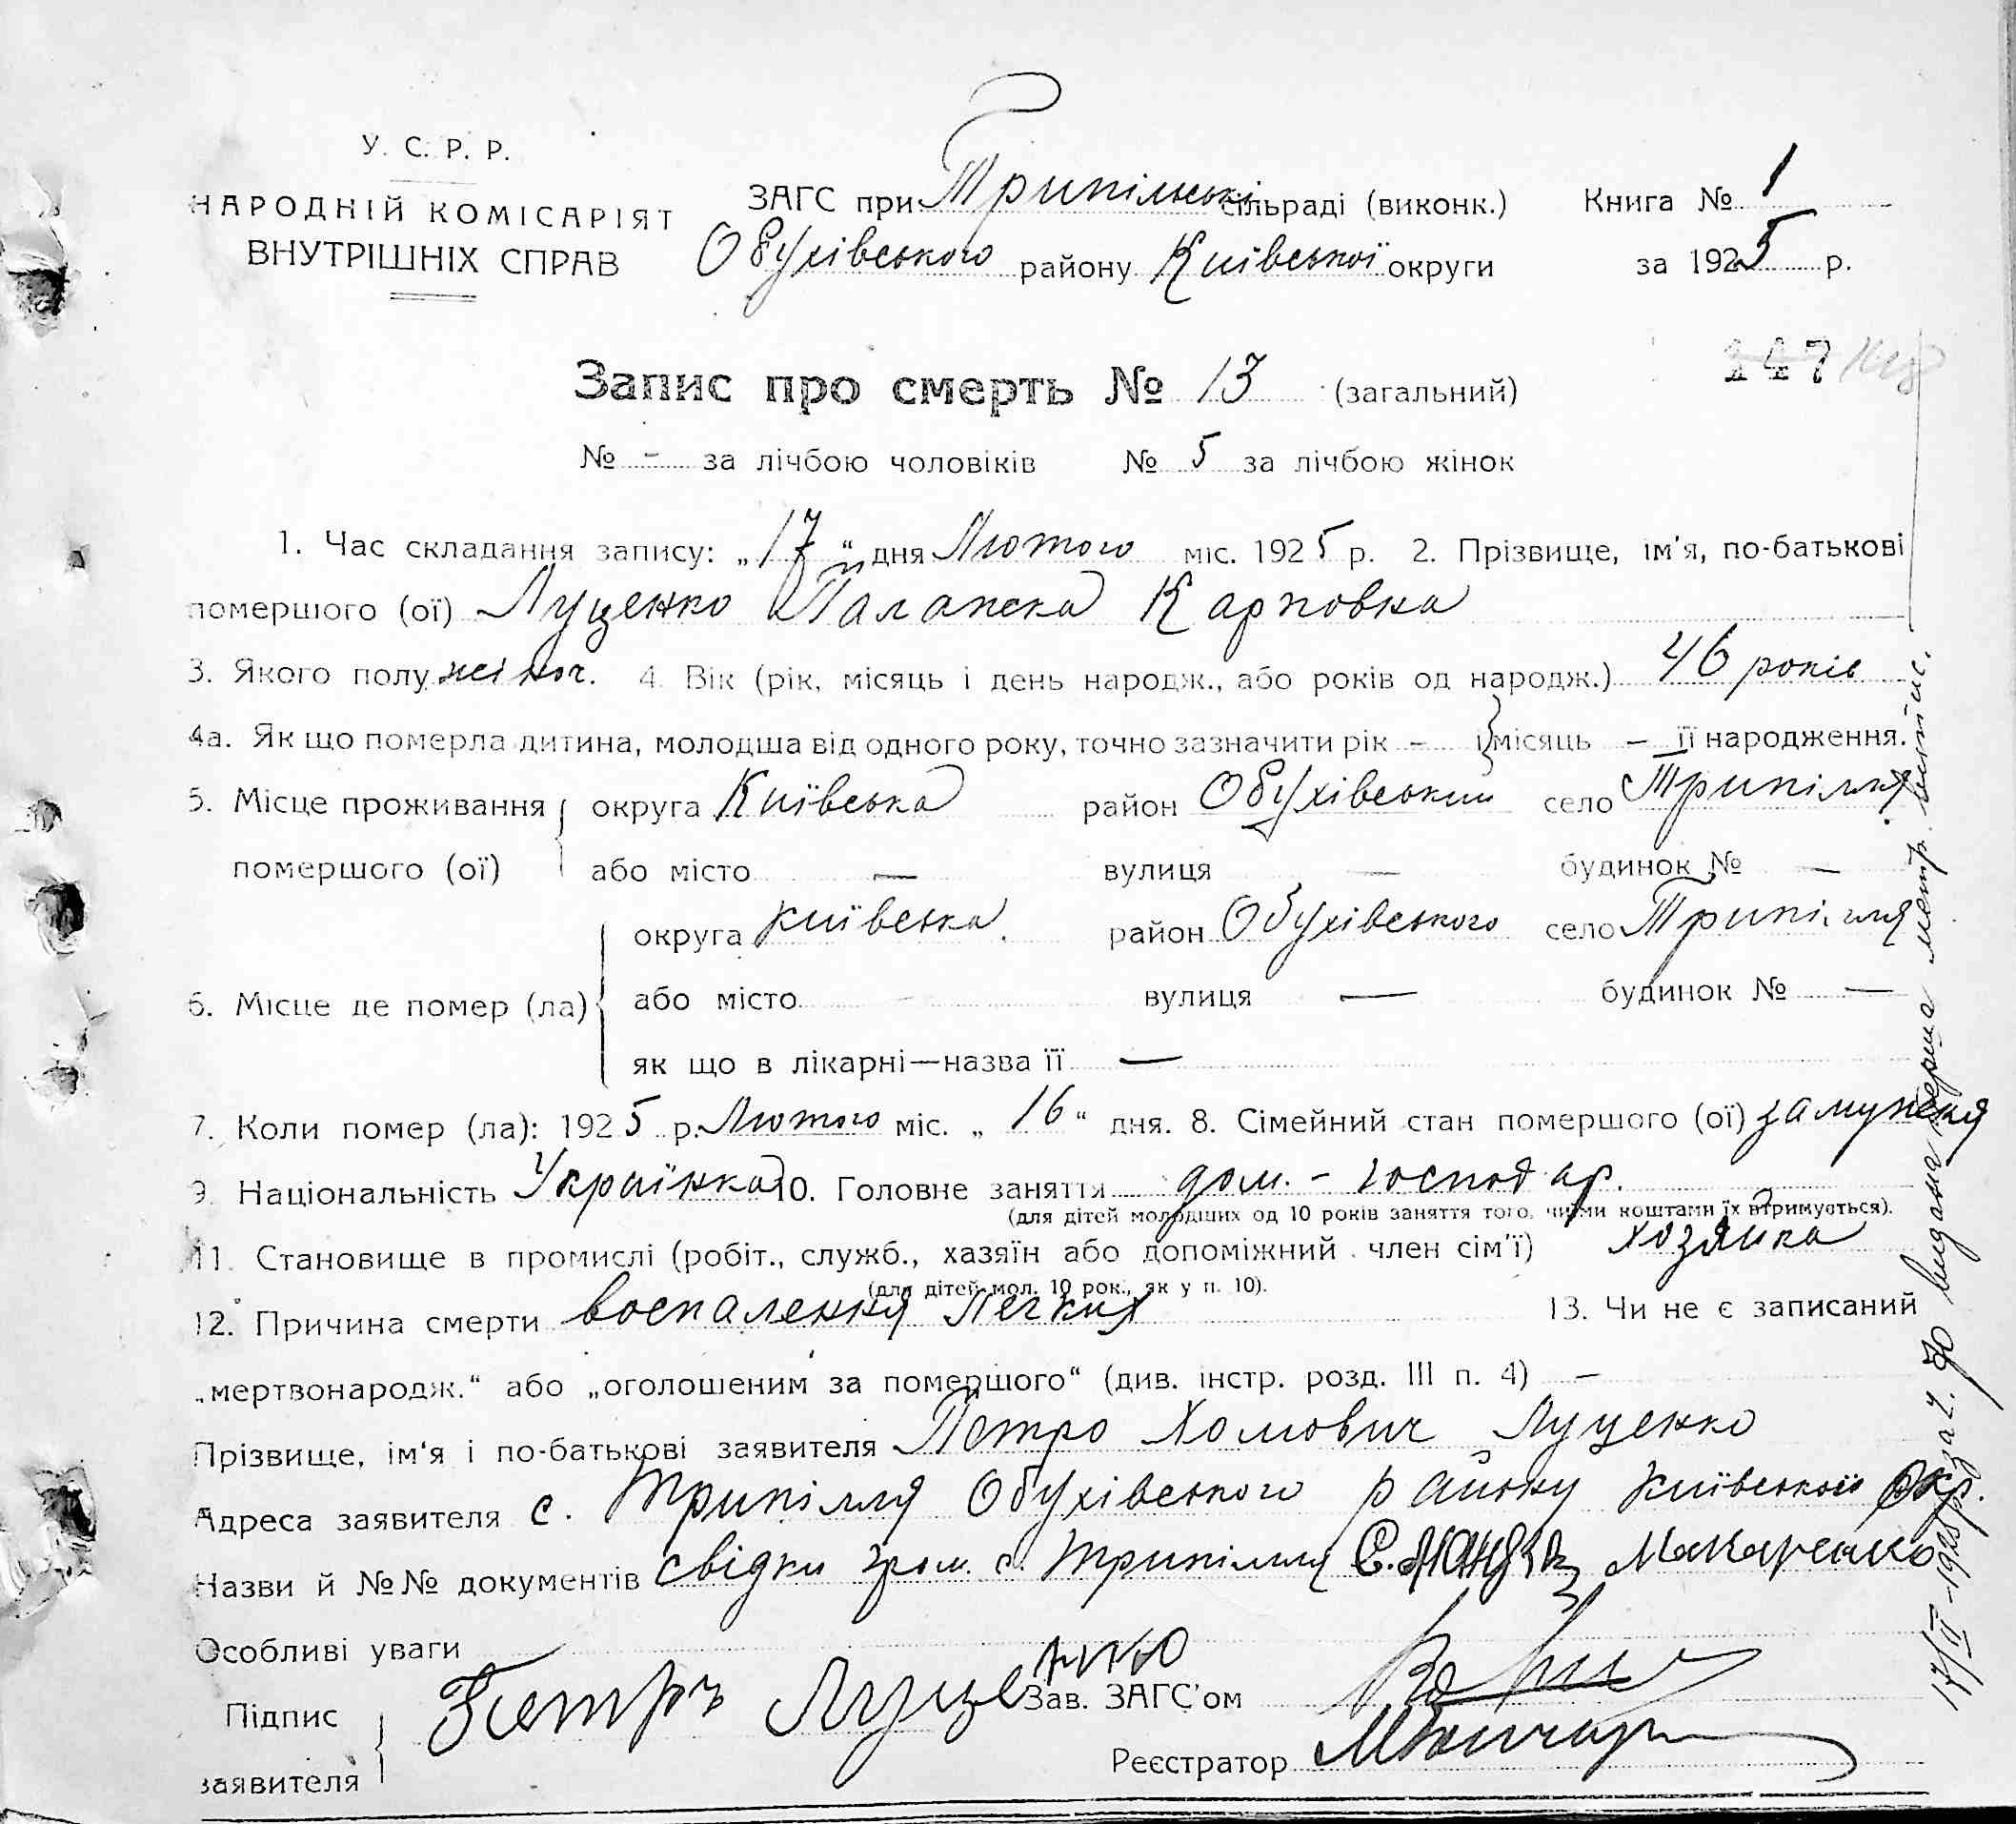 У. С. Р. Р.
НАРОДНІЙ КОМІСАРІЯТ
ВНУТРІШНІХ СПРАВ
ЗАГС при Трипільські сільраді (виконк.)
Обухівського району Київської округи
Книга № 1
за 1925 р.
147 148
Запис про смерть № 13 (загальний)
№ - за лічбою чоловіків № 5 за лічбою жінок
1. Час складання запису: „17“ дня Лютого міс. 1925 р. 2. Прізвище, ім'я, по-батькові
помершого (ої) Луценко Палажка Карповна
3. Якого полу жіноч. 4. Вік (рік, місяць і день народж., або років од народж.) 46 років
4а. Як що померла дитина, молодша від одного року, точно зазначити рік - і місяць - її народження.
5. Місце проживання округа Київська район Обухівський село Трипілля
помершого (ої) або місто — вулиця — будинок № —
округа київська район Обухівського село Трипілля
6. Місце де помер (ла) або місто - вулиця — будинок № —
як що в лікарні—назва її —
7. Коли помер (ла): 1925 р. Лютого міс. „16“ дня. 8. Сімейний стан помершого (ої) замужня
9. Національність Українка 10. Головне заняття дом. - господар.
(для дітей молодших од 10 років заняття того, чиїми коштами їх втримується).
11. Становище в промислі (робіт., служб., хазяїн або допоміжний член сім'ї) хозяйка
(для дітей мол. 10 рок., як у п. 10).
12. Причина смерти воспалення Легких 13. Чи не є записаний
„мертвонародж.“ або „оголошеним за помершого“ (див. інстр. розд. III п. 4) —
Прізвище, ім'я і по-батькові заявителя Петро Хомович Луценко
Адреса заявителя с. Трипілля Обухівського району Київської окр.
Назви й №№ документів свідки гром. с. Трипілля С. Макаренко
Особливі уваги
Підпис заявителя Петръ Луценко
Зав. ЗАГС'ом
Реєстратор
видана перша метр. випис.
17/II-1925 р.